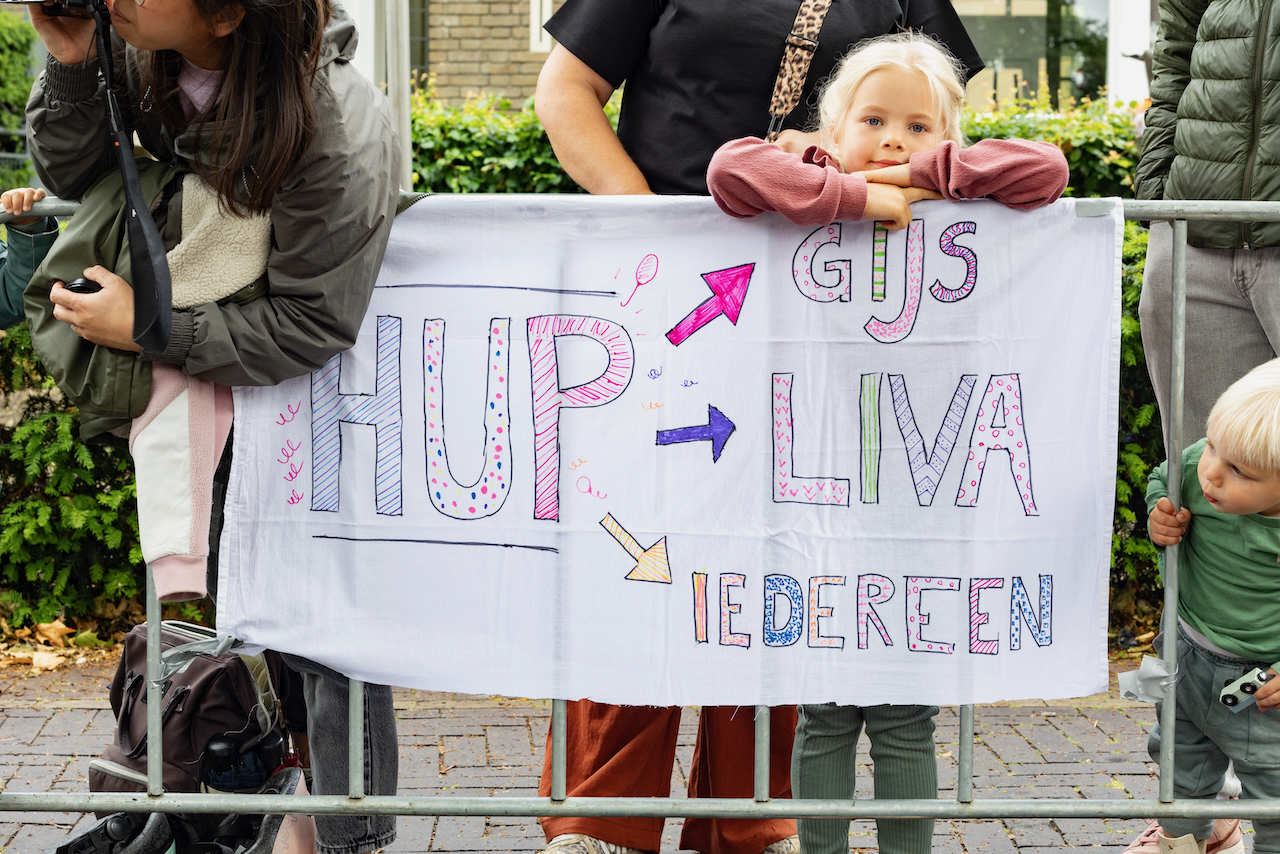 HUP
GIJS
LIVA
IEDEREEN